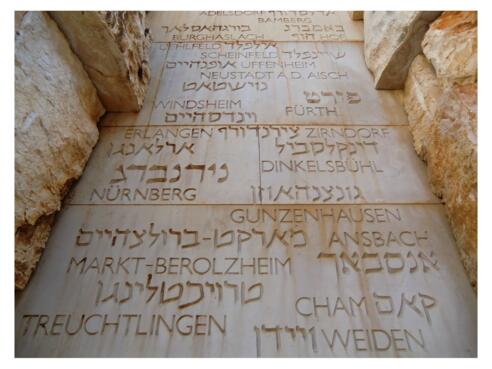 ADELSDORF אדלסדורף
BAMBERG
BURGHASLACH במברג
HOF הוף
UEHLFELD אילפלד
SCHEINFELD שיינפלד
UFFENHEIM אופנהיים
NEUSTADT A.D. AISCH
נוישטאט
WINDSHEIM
FÜRTH פירט
ווינדסהיים
ERLANGEN צירנדורף ZIRNDORF
ארלאנגן דינקלסביל
נירנברג DINKELSBÜHL
NÜRNBERG גונצנהאוזן
GUNZENHAUSEN
מארקט-ברולצהיים ANSBACH
MARKT-BEROLZHEIM אנסבאך
טרויכטלינגן
CHAM קאם
TREUCHTLINGEN וויידן WEIDEN